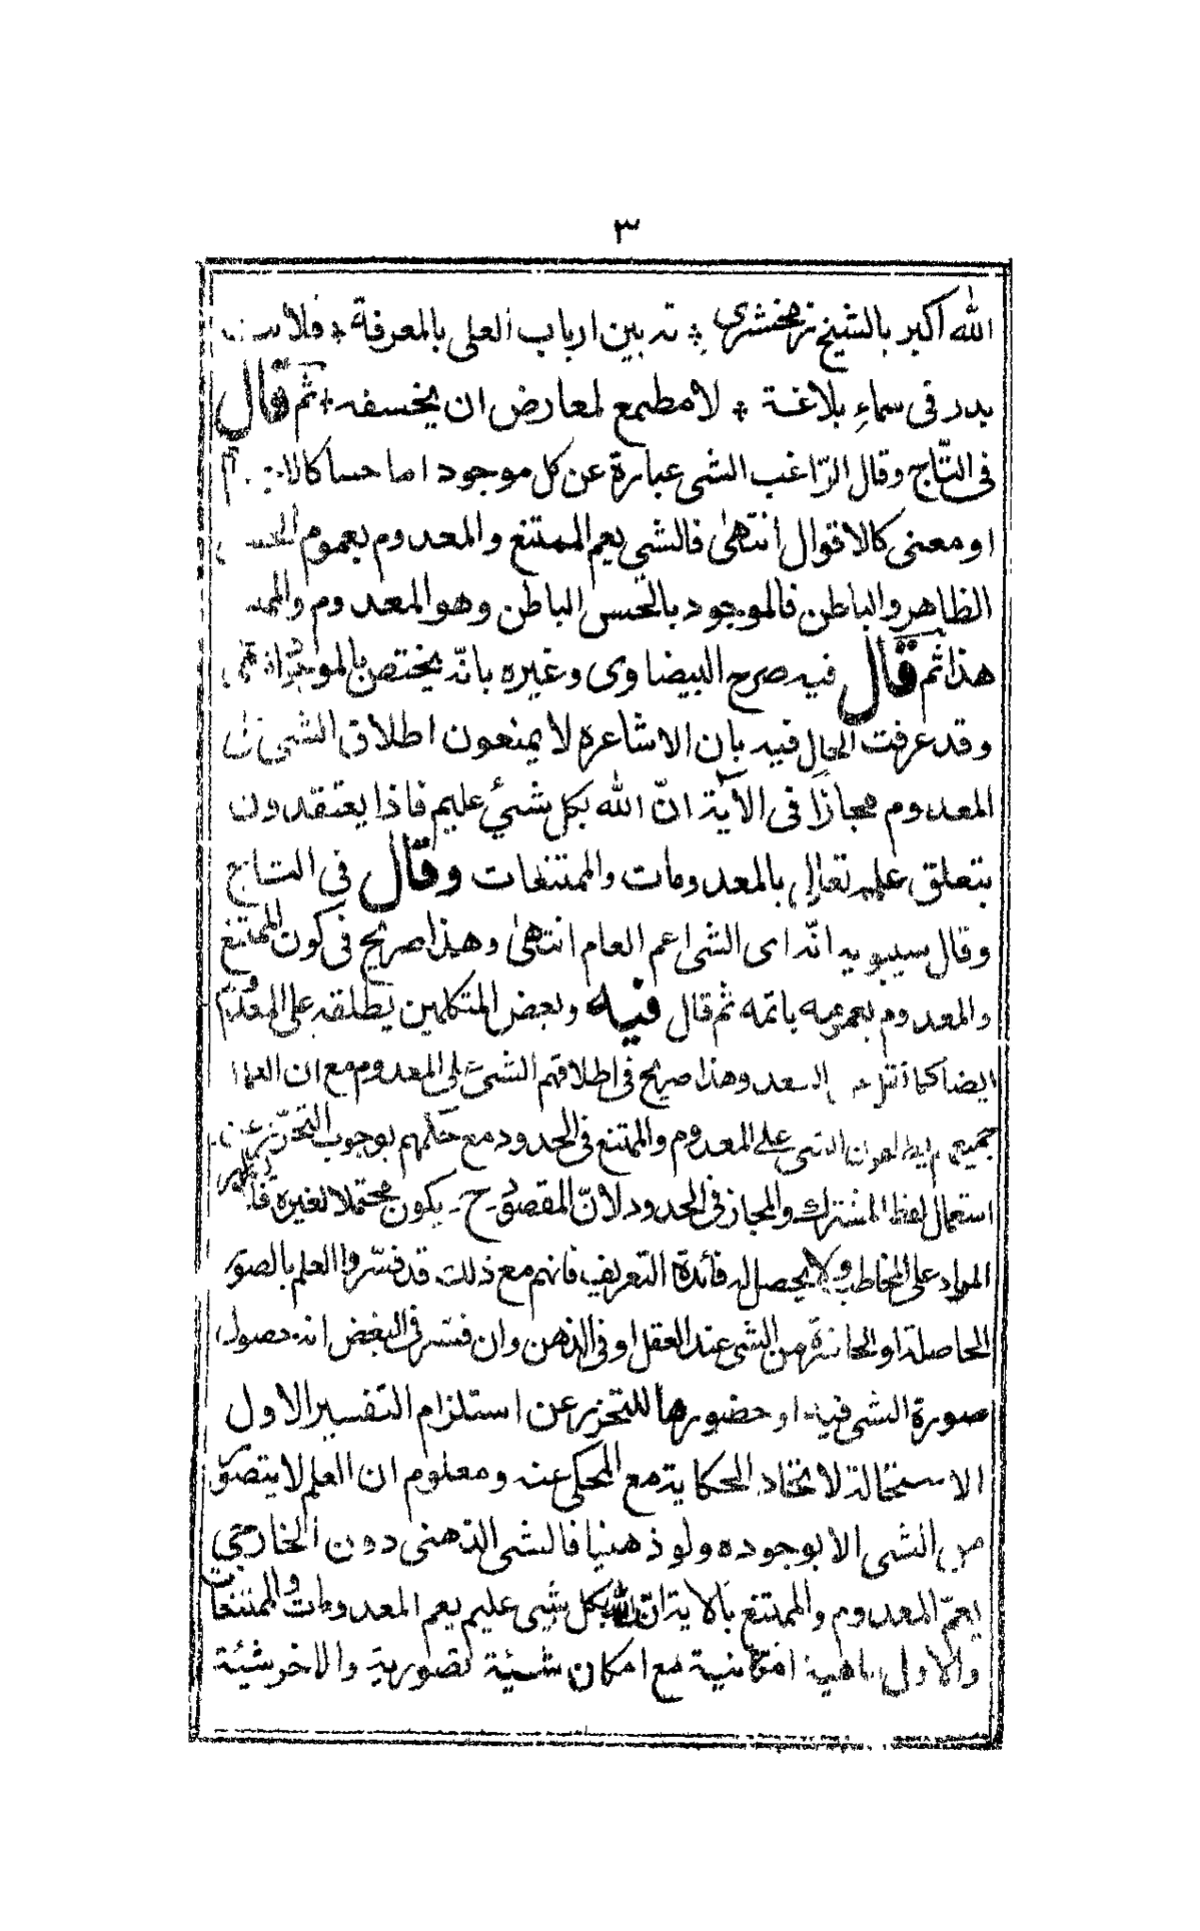 ٣
الله اكبر بالشيخ زمخشرى * تد بين ارباب العلى بالمعرفة *
بدر فى سماء بلاغة * لا مطمع لمعارض ان يخسفه * ثم قال
فى التّاج وقال الرّاغب الشى عبارة عن كل موجود اما حسا
او معنى كالاقوال انتهىٰ فالشي يعم الممتنع والمعدوم بعموم
الظاهر والباطن فالموجود بالحس الباطن وهو المعدوم
هذا ثم قال فيه صرح البيضاوى وغيره بانّه يختص بالموجود
وقد عرفت الحال فيه بان الاشاعرة لا يمنعون اطلاق الشى
المعدوم مجازًا فى الآية انّ الله بكل شئي عليم فاذا يعتقدون
بتعلق علمه تعالى بالمعدومات والممتنعات وقال فى التاج
وقال سيبويه انّه اى الشى اعم العام انتهىٰ وهذا صريح فى كون الممتنع
والمعدوم بعمومه باتمّه ثم قال فيه وبعض المتكلمين يطلقه على المعدوم
ايضا كما السعد وهذا صريح فى اطلاقهم الشئ على المعدوم مع ان
جميعهم يطلقون الشى على المعدوم والممتنع فى الحدود مع حكمهم بوجوب التحرّز عن
استعمال لفظ المشترك والمجاز فى الحدود لانّ المقصود ح يكون محتملا لغيره
المراد على المخاطب ولا يحصل له فائدة التعريف فانهم مع ذلك قد فسّروا العلم بالصور
الحاصلة او الحاضرة من الشى عند العقل او فى الذهن وان فسّر فى البعض انه حصول
صورة الشى فيه او حضورها للتحرز عن استلزام التفسير الاول
الاستحالة لاتحاد الحكاية مع المحكى عنه ومعلوم ان العلم لا يتصوّر
من الشى الا بوجوده ولو ذهنيا فالشى الذهنى دون الخارجى
يعمّ المعدوم والممتنع بالاية انّ الله بكل شيى عليم يعم المعدومات والممتنعات
والاول ماهية امكانية مع امكان شيئة تصورية والاخر شيئة